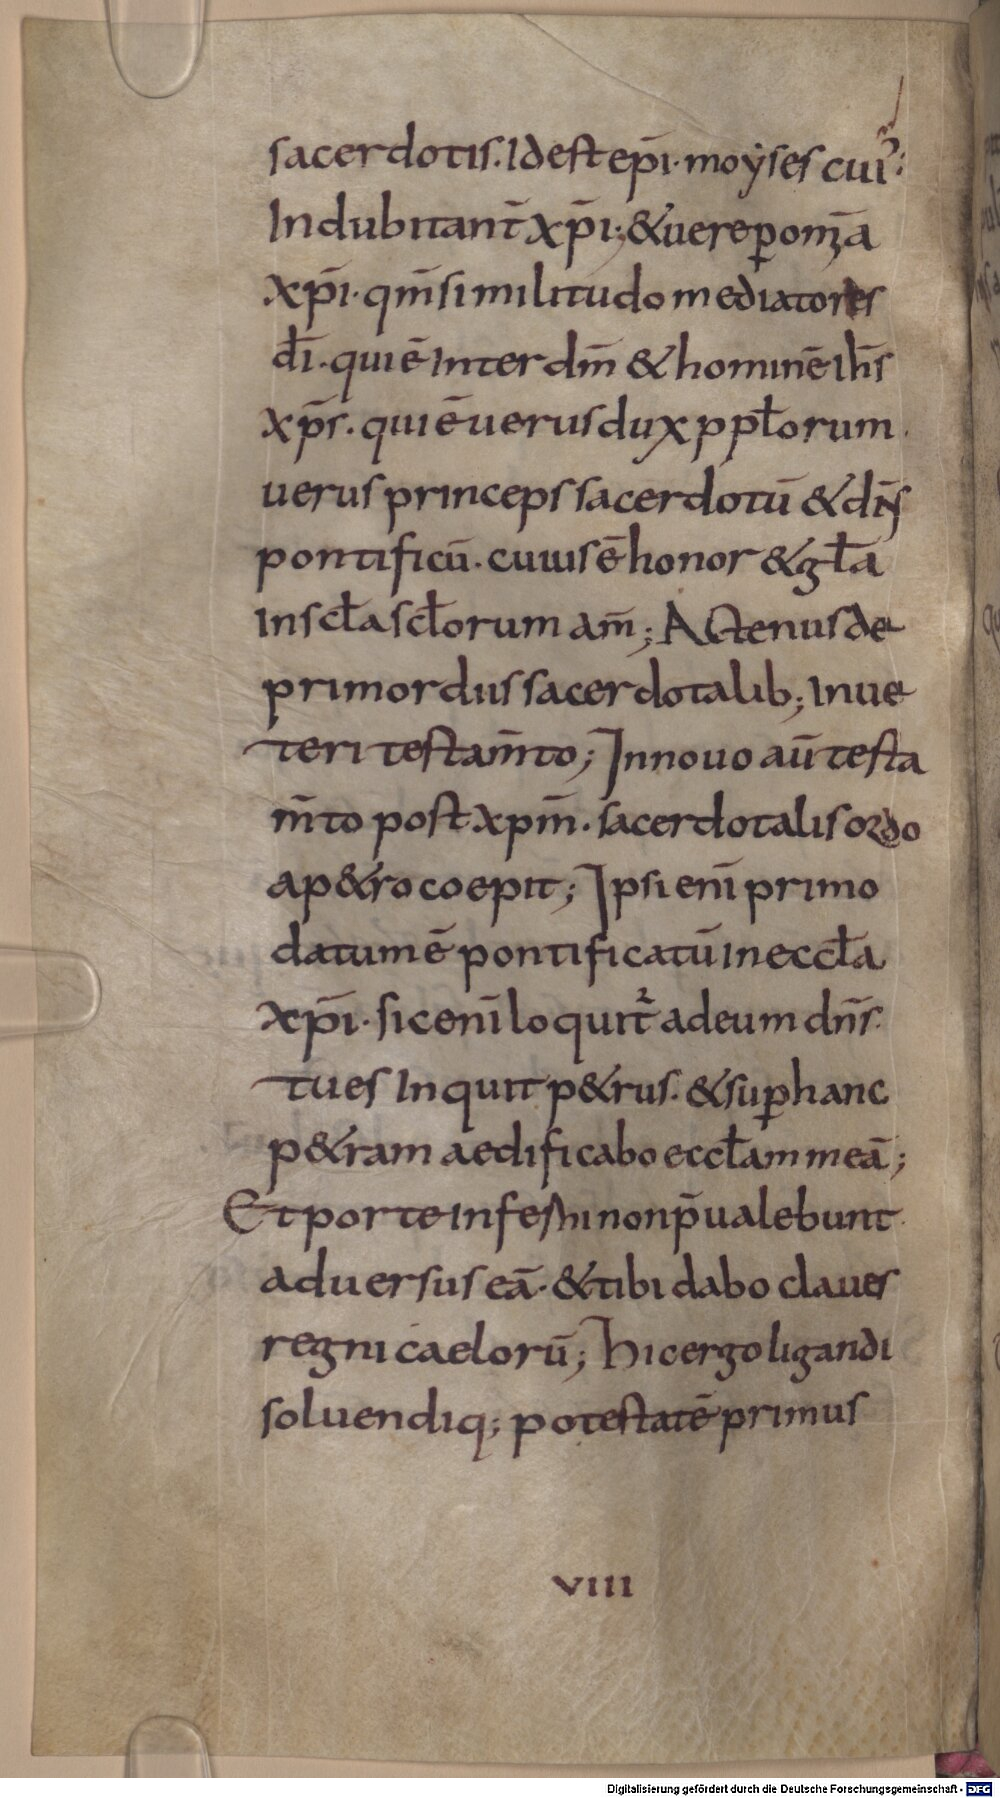 sacerdotis. Idest ep̄i. moẏses cui?:
Indubitant̄ xp̄i; & uere ꝑ om̄a
xp̄i. qm̄ similitudo mediatores
dī. qui ē inter dm̄ & hominē ih̄s
xp̄s. qui ē uerus dux p ppl̄orum.
uerus princeps sacerdotū & dn̄s
pontificū. cuius ē honor & gl̄a
In scl̄a scl̄orum am̄; Actenus de
primordiis sacerdotalib; In ue
teri testam̄to; In nouo aū testa
m̄to post xpm̄. sacerdotalis ordo
a p&ro coepit; Ipsi enī primo
datum ē pontificatū in eccl̄a
xp̄i. sic enī loquit̄ ad eum dn̄s.
tu es Inquit p&rus. & suꝑ hanc
p&ram aedificabo eccl̄am meā;
Et porte inferni non p̄ualebunt
aduersus eā. & tibi dabo claues
regni caelorū; Hic ergo ligandi
soluendiq; potestatē primus
VIII
Digitalisierung gefördert durch die Deutsche Forschungsgemeinschaft - DFG